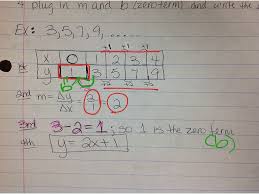 4 plug in m and b (zero term) and write the
Ex: 3, 5, 7, 9, .....
+1 +1 +1
1st x 0 1 2 3 4
y 1 3 5 7 9
b +2 +2 +2
2nd m = Δy/Δx = 2/1 = 2
3rd 3-2=1; so 1 is the zero term (b)
4th y = 2x+1